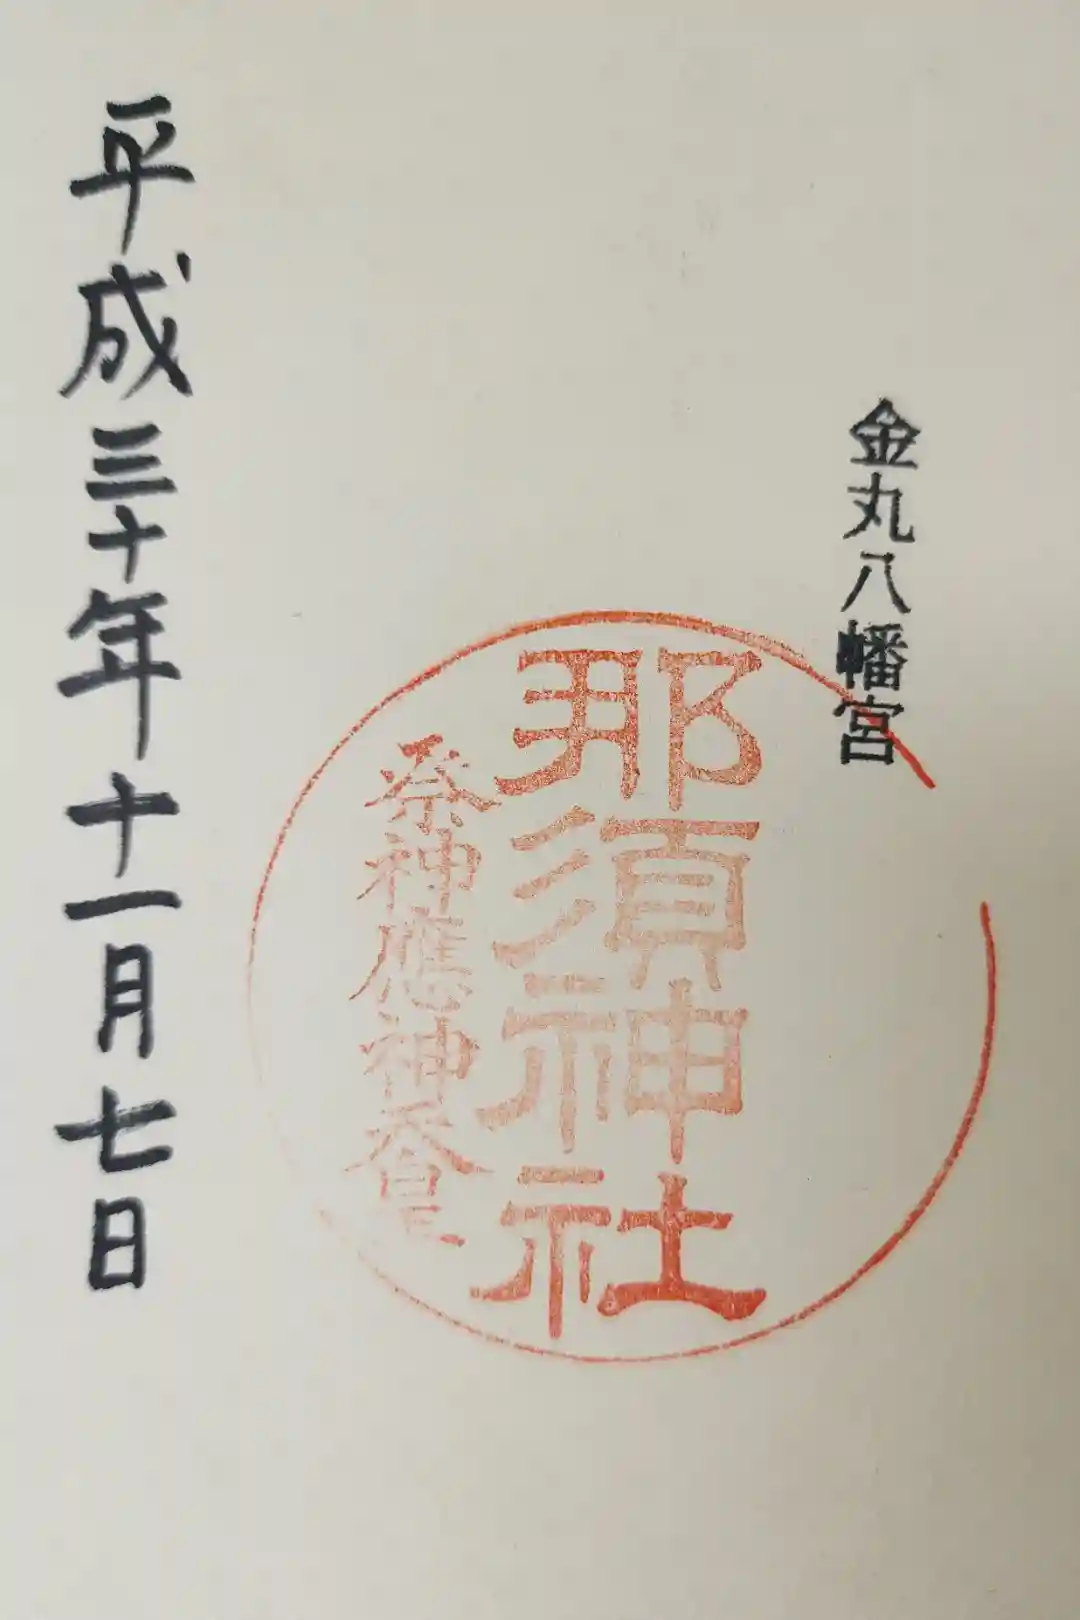 金丸八幡宮
那須神社
祭神應神天皇
平成三十年十一月七日